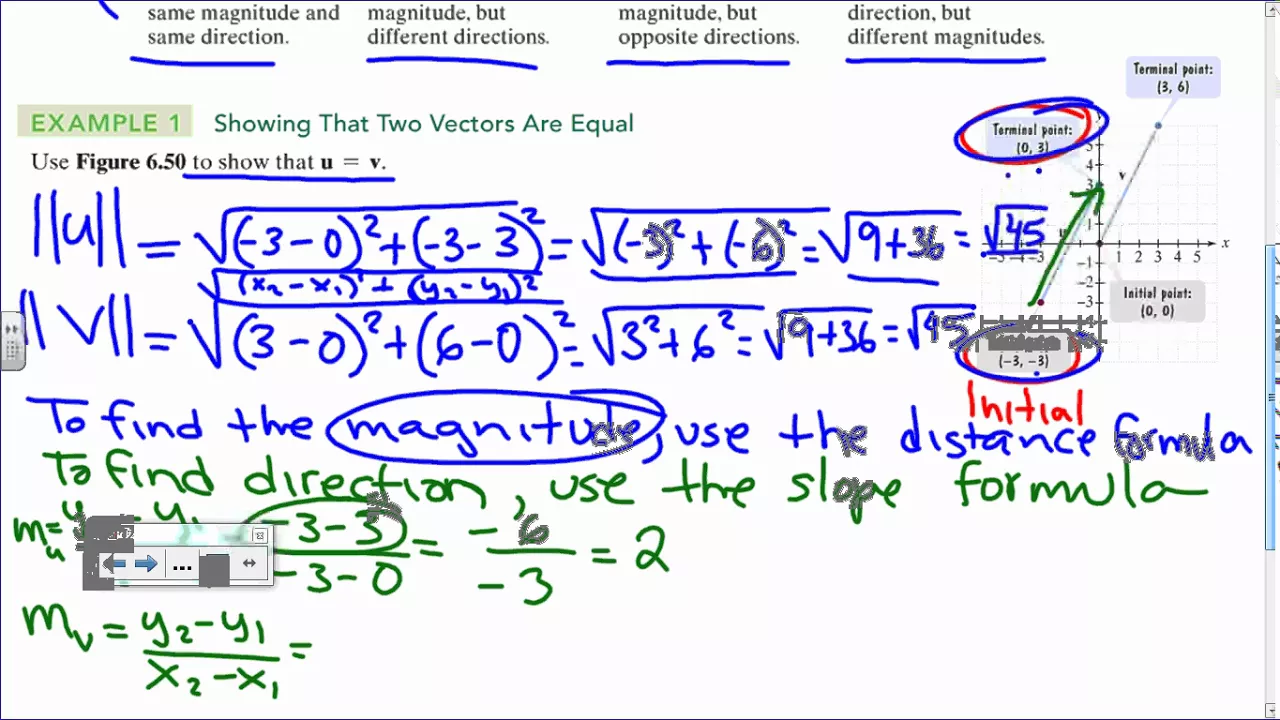 same magnitude and
same direction.
magnitude, but
different directions.
magnitude, but
opposite directions.
direction, but
different magnitudes.
Terminal point:
(3, 6)
EXAMPLE 1 Showing That Two Vectors Are Equal
Use Figure 6.50 to show that u = v.
Terminal point:
(0, 3)
||u|| = √(-3-0)²+(-3-3)² = √(-3)²+(-6)² = √9+36 = √45
√(x₂-x₁)²+(y₂-y₁)²
||v|| = √(3-0)²+(6-0)² = √3²+6² = √9+36 = √45
5
4
3
1
v
u
x
1 2 3 4 5
-1
-2
-3
Initial point:
(0, 0)
(-3, -3)
Initial
To find the magnitude, use the distance formula
To find direction, use the slope formula
mᵤ = -3-3 / -3-0 = -6 / -3 = 2
mᵥ = y₂-y₁ / x₂-x₁ =